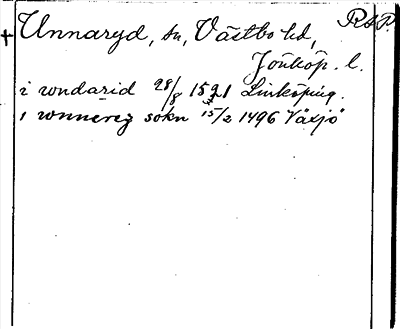 R&P.
+ Unnaryd, sn, Västbo hd,
Jönköp. l.
i wndarid 28/8 1521 Linköping.
i wnnerez sokn 15/2 1496 Växjö